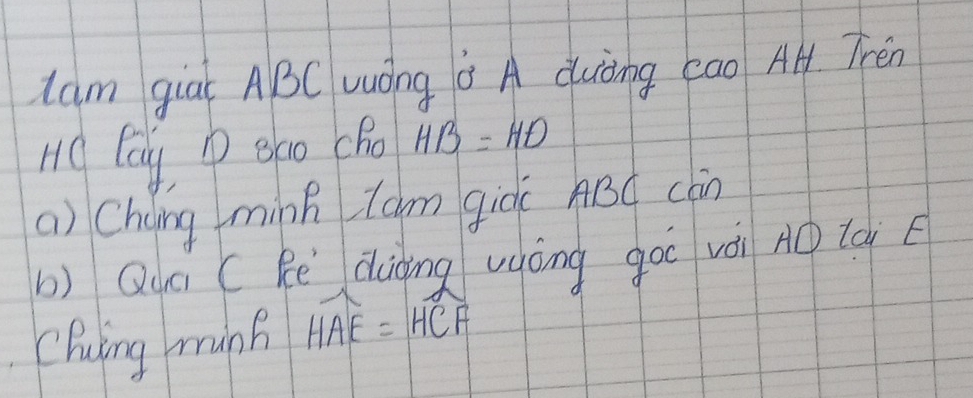 Tam giác ABC vuông ở A đường cao AH. Trên
HC lấy D sao cho HB = HD
a) Chứng minh Tam giác ABC cân
b) Qua C kẻ đường vuông góc với AD tại E
Chứng minh HAE = HCA